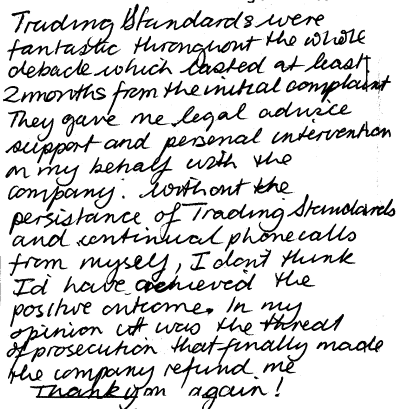 Trading Standards were
fantastic throughout the whole
debacle which lasted at least
2 months from the initial complaint
They gave me legal advice
support and personal intervention
on my behalf with the
company. Without the
persistance of Trading Standards
and continual phonecalls
from myself, I don't think
I'd have achieved the
positive outcome. In my
opinion it was the threat
of prosecution that finally made
the company refund me
Thank you again!